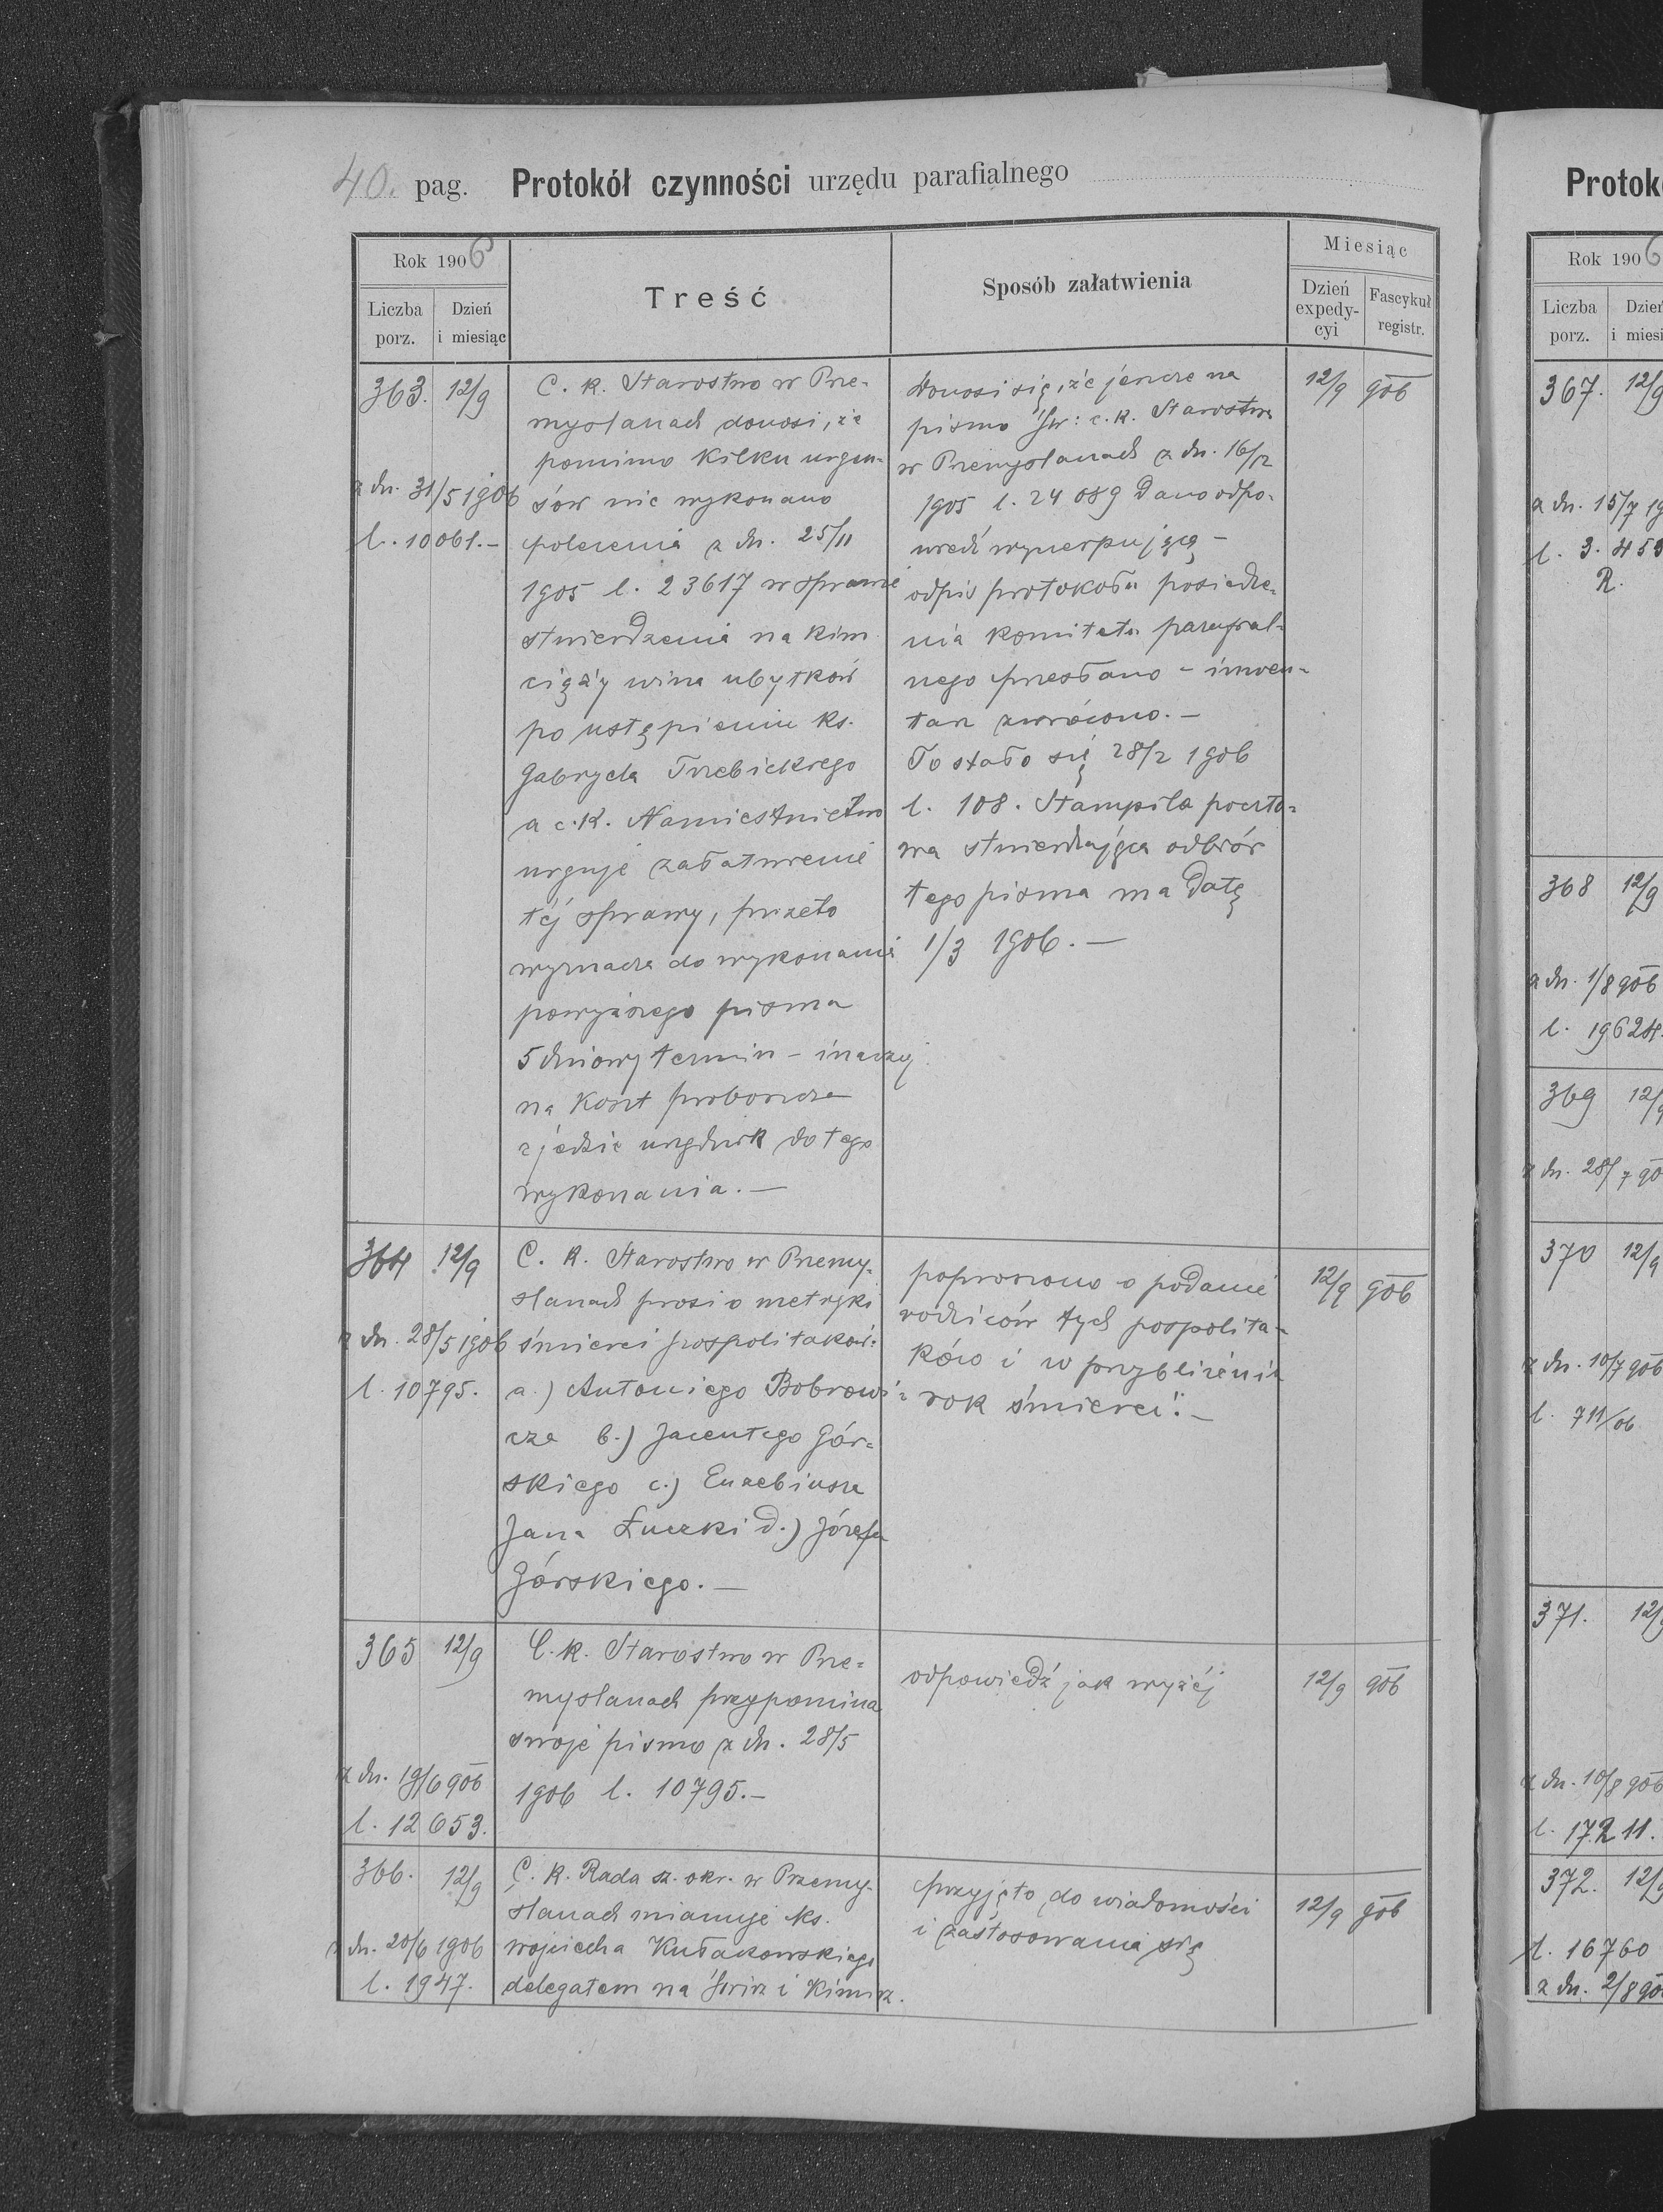 40. pag. Protokół czynności urzędu parafialnego
Rok 1906
Liczba porz.
Dzień i miesiąc
Treść
Sposób załatwienia
Miesiąc
Dzień expedy-cyi
Fascykuł registr.
363. 12/9
z dn. 31/5 1906
l. 10061.—
C. k. Starostwo w Prze-
myślanach donosi, że
pomimo kilku urgen-
sów nie wykonano
polecenia z dn. 25/11
1905 l. 23617 w sprawie
stwierdzenia na kim
ciąży wina ubytków
po ustąpieniu ks.
Gabryela Trzebickiego
a c. k. Namiestnictwo
urguje załatwienie
téj sprawy, przeto
wyznacza do wykonania
powyższego pisma
5 dniowy termin – inaczej
na koszt proboszcza
zjedzie urzędnik do tego
wykonania.—
Donosi się, że jeszcze na
pismo Św: c. k. Starostwa
w Przemyślanach z dn. 16/12
1905 l. 24089 dano odpo-
wiedź wyczerpującą –
odpis protokołu posiedze-
nia komitetu parafial-
nego przesłano – inwen-
tarz zwrócono.—
To stało się 28/2 1906
l. 108. Stampila poczto-
wa stwierdzająca odbiór
tego pisma ma datę
1/3 1906.—
12/9 906
364 12/9
z dn. 28/5 1906
l. 10795.
C. k. Starostwo w Przemy-
ślanach prosi o metryki
śmierci pospolitaków:
a.) Antoniego Bobrowi-
cza b.) Jacentego Gór-
skiego c.) Euzebiusza
Jana Łuczki d.) Józefa
Górskiego.—
poproszono o podanie
rodziców tych pospolita-
ków i w przybliżeniu
rok śmierci.—
12/9 906
365 12/9
z dn. 19/6 906
l. 12653.
C. k. Starostwo w Prze-
myślanach przypomina
swoje pismo z dn. 28/5
1906 l. 10795.—
odpowiedź jak wyżéj
12/9 906
366. 12/9
z dn. 20/6 1906
l. 1947.
C. k. Rada sz. okr. w Przemy-
ślanach mianuje ks.
Wojciecha Kułakowskiego
delegatem na Świrz i Kimirz.
przyjęto do wiadomości
i zastosowania się
12/9 906
Protok
Rok 1906
Liczba porz.
Dzień i miesi
367. 12/9
z dn. 15/7 19
l. 3. 453
R.
368 12/9
z dn. 1/8 906
l. 19624.
369 12/9
z dn. 28/7 90
370 12/9
z dn. 10/7 906
l. 711/06
371. 12/
z dn. 10/8 906
l. 17211.
372. 12/9
l. 16760
z dn. 2/8 90